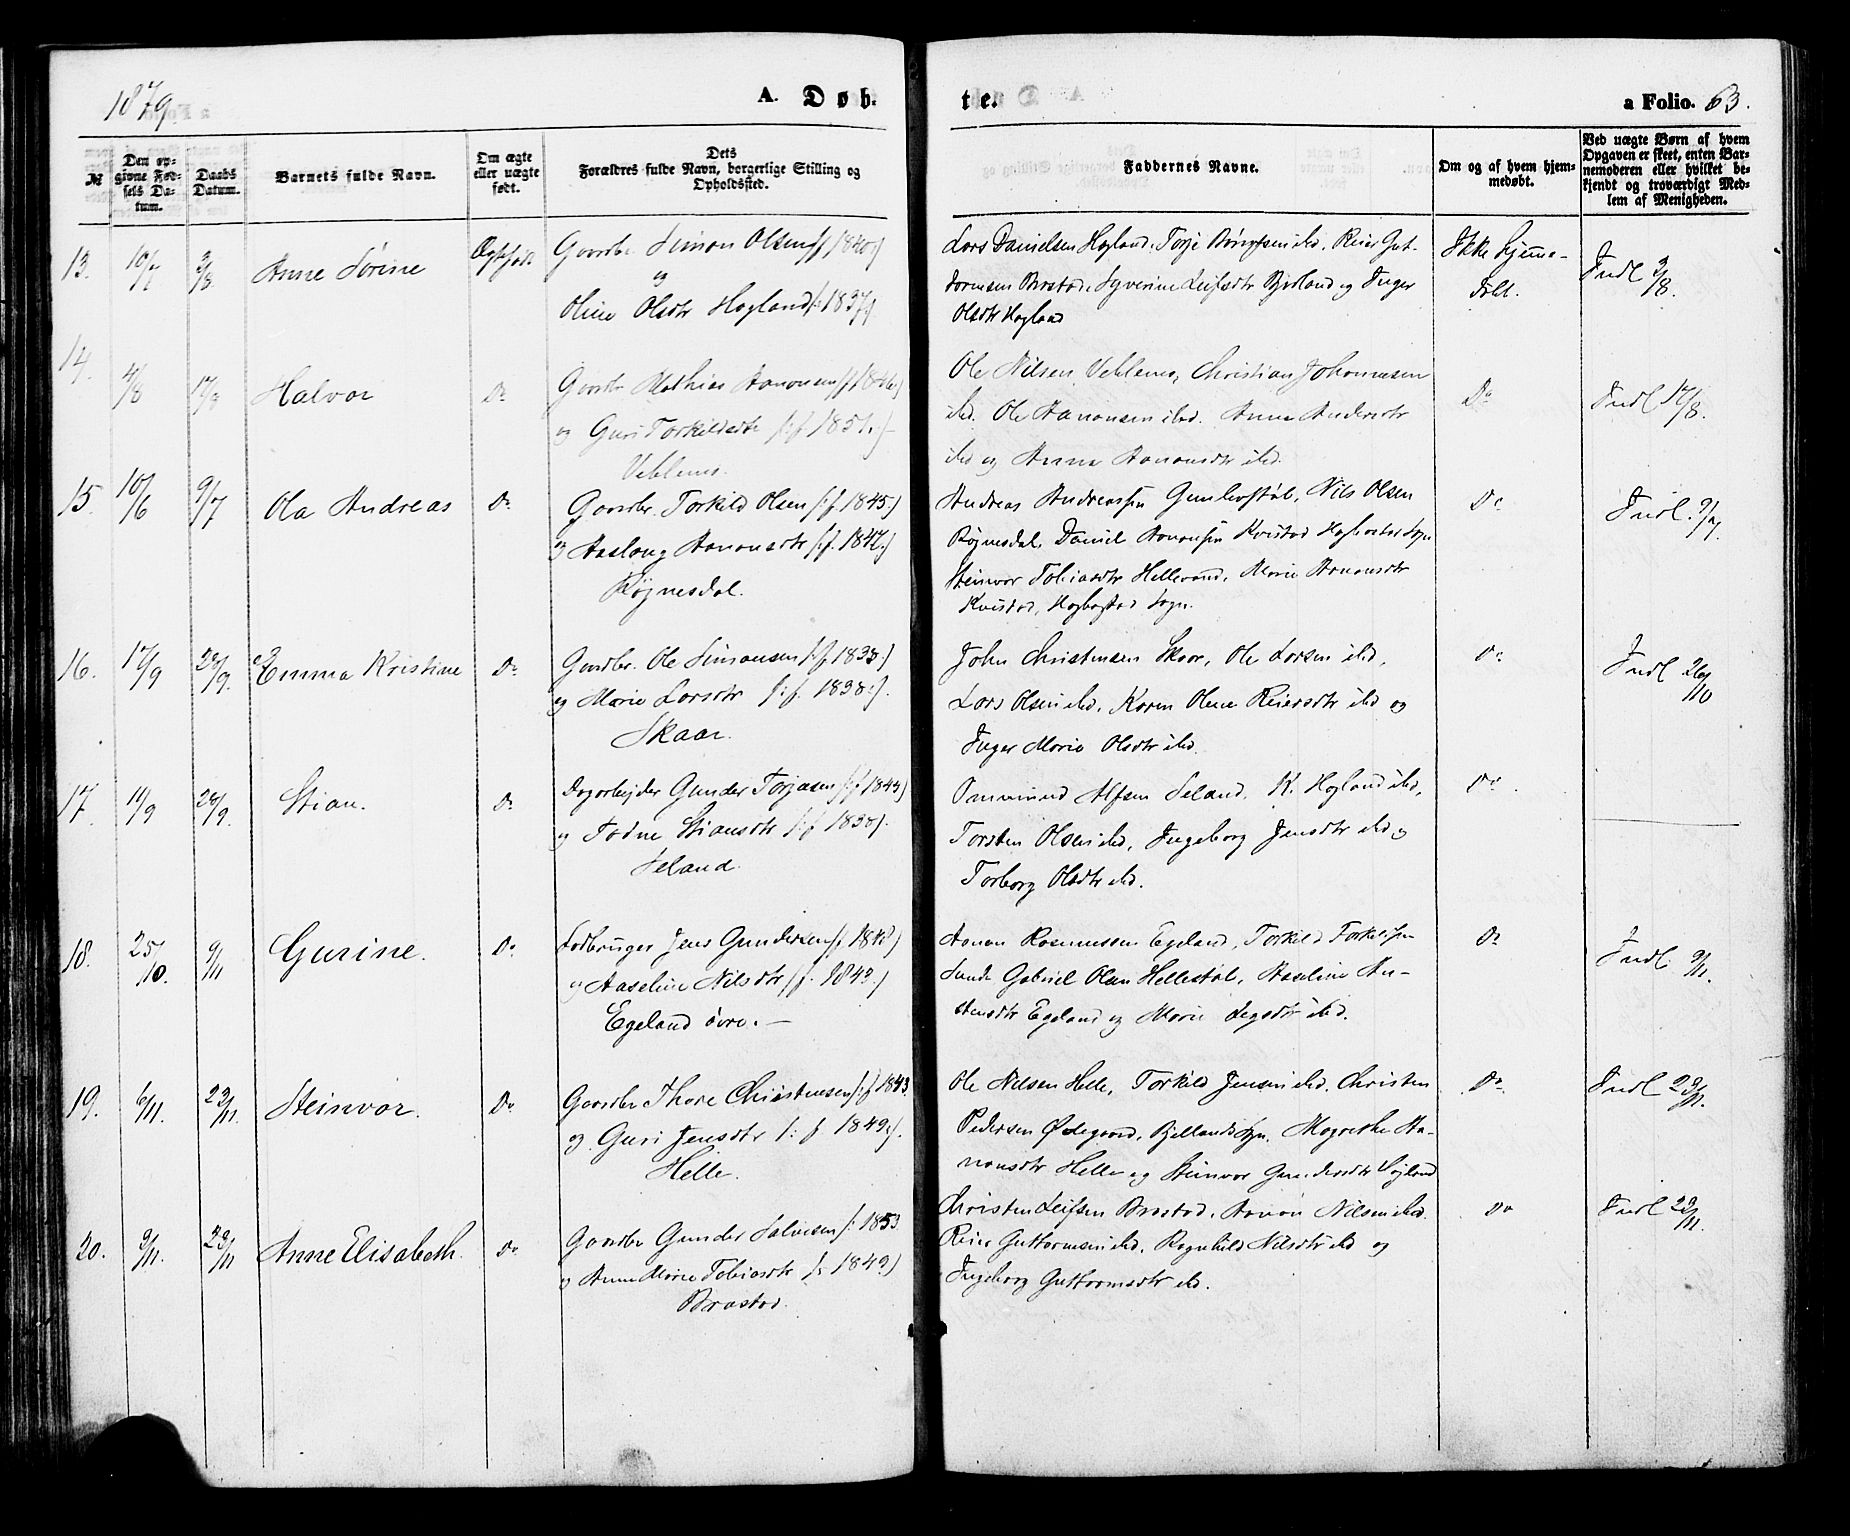 1879.
A. Døb-
te.
a Folio. 63.
№
Den op-
givne Fød-
sels Da-
tum.
Daabs
Datum.
Barnets fulde Navn.
Om ægte
eller uægte
født.
Dets
Forældres fulde Navn, borgerlige Stilling og
Opholdssted.
Faddernes Navne.
Om og af hvem hjem-
medøbt.
Ved uægte Børn af hvem
Opgaven er skeet, enten Bar-
nemoderen eller hvilket be-
kjendt og troværdigt Med-
lem af Menigheden.
13.
10/7
3/8
Anne Sørine
Ægtefødt
Gaardbr. Simon Olsen /:f 1840:/
og
Oline Olsdtr Hogland /:1837:/
Lars Danielsen Hogland, Torje Børufsen ibd, Reier Gut-
tormsen Brastad, Syverine Leifsdtr Bjelland og Inger
Olsdtr Hogland
Ikke hjemme-
døbt.
Indl 3/8.
14.
4/8
17/8
Halvor
Do
Gaardbr Mathias Aanonsen /:f 1846:/
og Guri Torkildsdtr /:f 1851.:/
Ole Nilsen, Christian Johannesen
ibd. Ole Aanonsen ibd. Anne Andersdtr
ibd og Anna Aanonsdtr ibd.
Do
Indl 17/8.
15.
10/6
9/7
Ola Andreas
Do
Gaardbr. Torkild Olsen /:f 1845:/
og Aaslaug Aanonsdtr /:f. 1847:/
Røynesdal.
Andreas Andreassen Gunleostøl, Nils Olsen
Røynesdal, Daniel Aanonsen Kvistad Hægbostad Sogn
Steinvor Tobiasdtr Hellevand, Marie Aanonsdtr
Kvistad, Hægbostad Sogn.
Do
Indl. 9/7.
16.
17/9
28/9.
Emma Kristine
Do
Gaardbr. Ole Simonsen /:f 1838:/
og Marie Larsdtr /:f. 1838:/.
Skaar.
John Christensen Skaar, Ole Larsen ibd,
Lars Olsen ibd, Karen Olene Reiersdtr ibd og
Inger Marie Olsdtr ibd.
Do
Indl 26/10
17.
11/9
28/9.
Stian.
Do
Dagarbejder Gunder Torjasen /:f 1843:/
og Todne Stiansdtr /:f 1838:/.
Seland.
Ommund Alfsen Seland, K. Hogland ibd,
Torsten Olsen ibd, Ingeborg Jensdtr ibd og
Torborg Olsdtr ibd.
Do
18.
25/10.
9/11
Gurine.
Do
Jens Gundersen /:f. 1848/
og Aaseline Nilsdtr /:f. 1843:/
Egeland øvre. —
Aanon Rasmussen Egeland, Torkild Torkildsen
Lande Gabriel Olsen Hellestøl, Aaseline Au-
stensdtr Egeland og Marie ibd.
Do
Indl. 9/11.
19.
6/11.
23/11.
Steinvor.
Do
Gaardbr Thore Christensen /:f 1843.
og Guri Jensdtr /:f 1849:/.
Helle.
Ole Nilsen Helle, Torkild Jensen ibd. Christen
Pedersen Ødegaard, Bjellands Sgn. Magrethe Aa-
nonsdtr Helle og Steinvor Gundersdtr Vigeland
Do
Indl 23/11.
20.
9/11.
23/11
Anne Elisabeth
Do
Gaardbr Gunder Salvesen /: 1853.
og Anne Marie Tobiasdtr /: 1849:/
Brastad.
Christen Leifsen Brastad, Aanon Nilsen ibd.
Reier Guttormsen ibd, Ragnhild Nilsdtr ibd og
Ingeborg Guttormsdtr ibd.
Do
Indl 23/11.